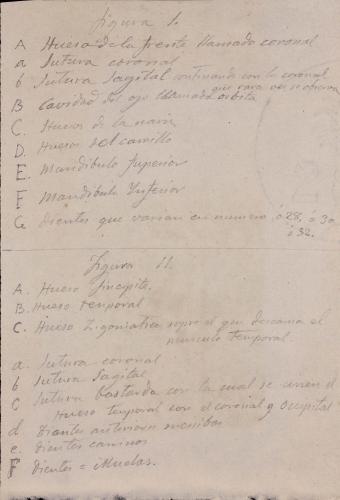 Figura I.
A Hueso de la frente llamado coronal
a Sutura coronal
b Sutura Sagital continuando con la coronal
que rara vez se observa
B Cavidad del ojo llamada orbita
C. Huesos de la nariz
D. Huesos del carrillo
E. Mandibulo Superior
F Mandibulo Ynferior
G Dientes que varian en numero ó 28, ó 30
ó 32.
Figura II.
A. Hueso Sincipite.
B. Hueso temporal
C. Hueso Zigomatico sopre el que descansa el
musculo temporal
a. Sutura coronal
b Sutura Sagital
C Sutura bastarda con la cual se unen el
Hueso temporal con el coronal y Occipital
d. Dientes anteriores
e. Dientes caninos
F Dientes = Muelas.